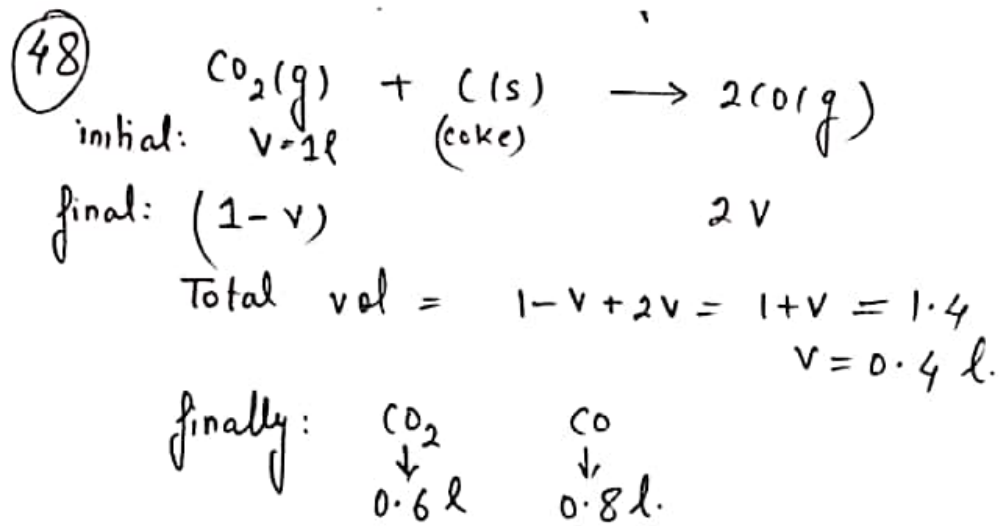 48
CO₂(g) + C(s) → 2CO(g)
initial: V=1l (coke)
final: (1-v) 2v
Total vol = 1-v+2v = 1+v = 1.4
v = 0.4 l.
finally: CO₂ CO
↓ ↓
0.6 l 0.8 l.